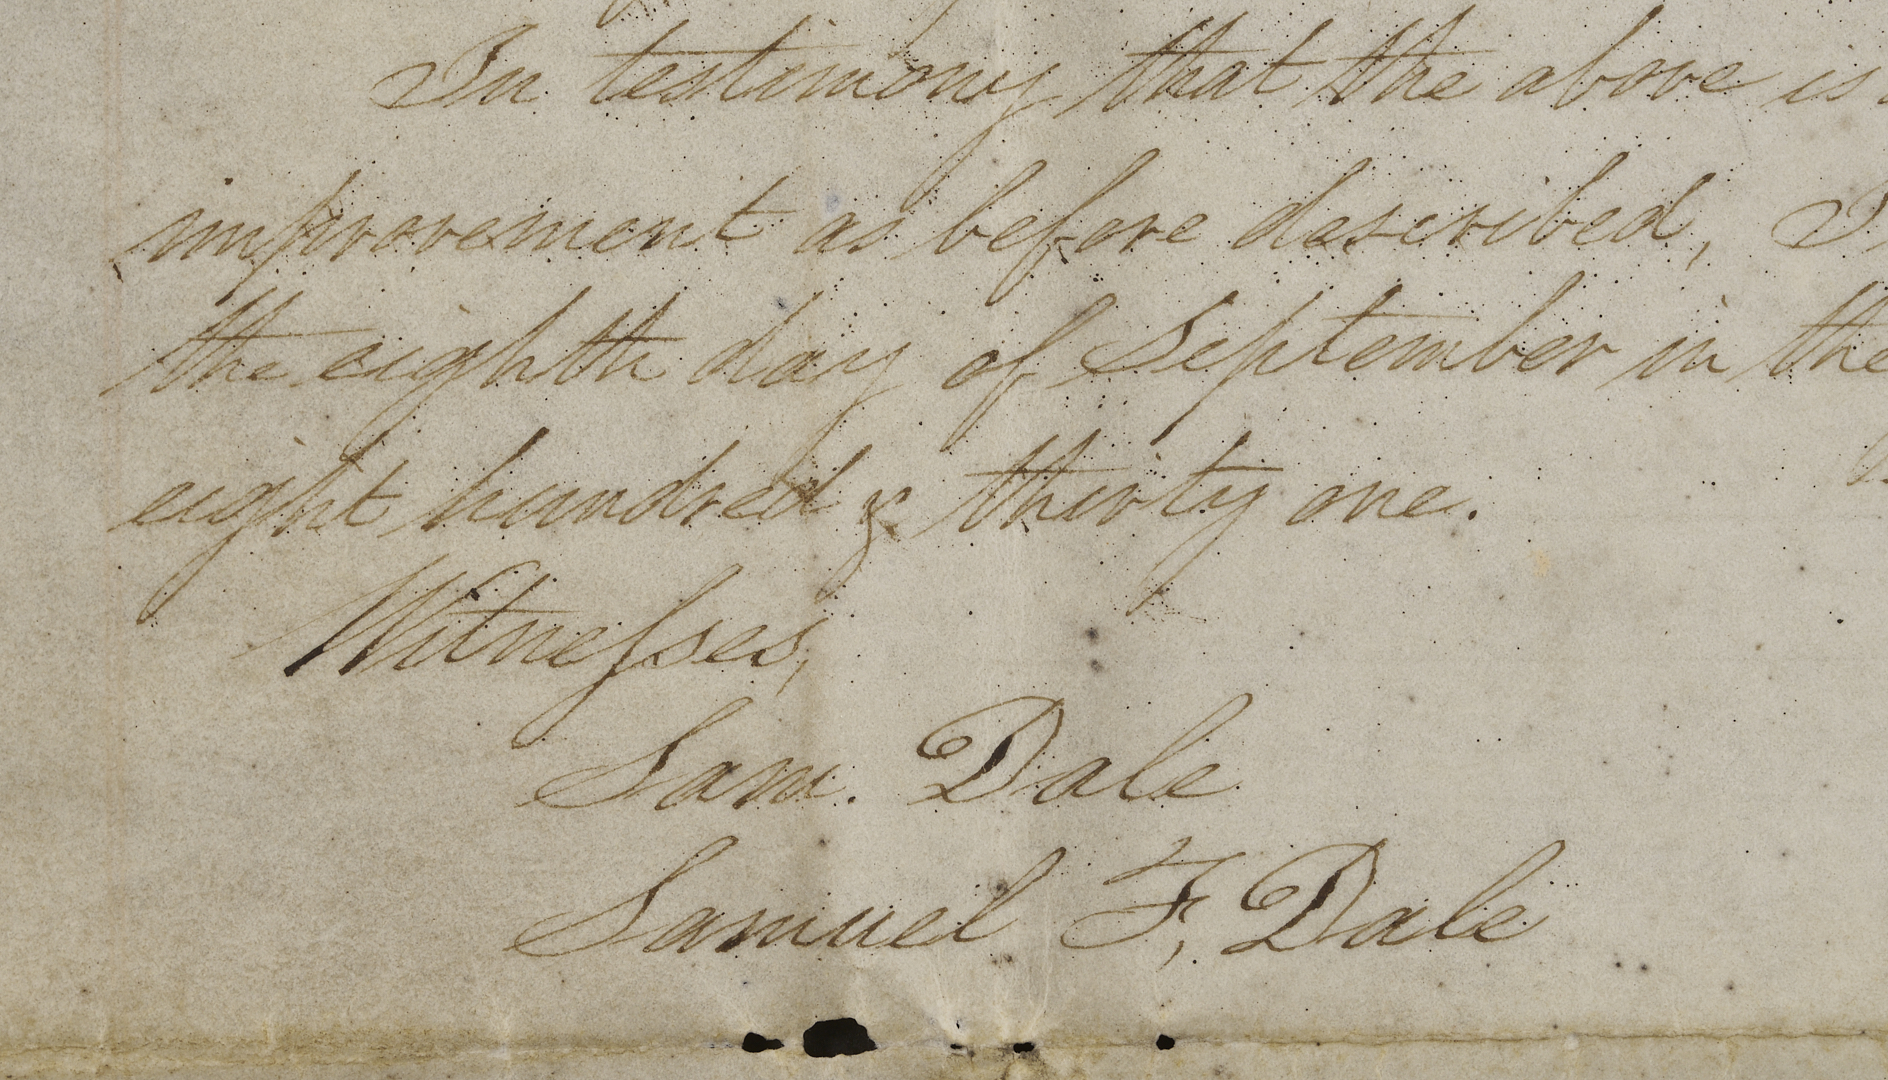 In testimony that the above is
improvement as before described, I
the eighth day of September in the
eight hundred & thirty one.
Witnesses,
Sam. Dale
Samuel F, Dale